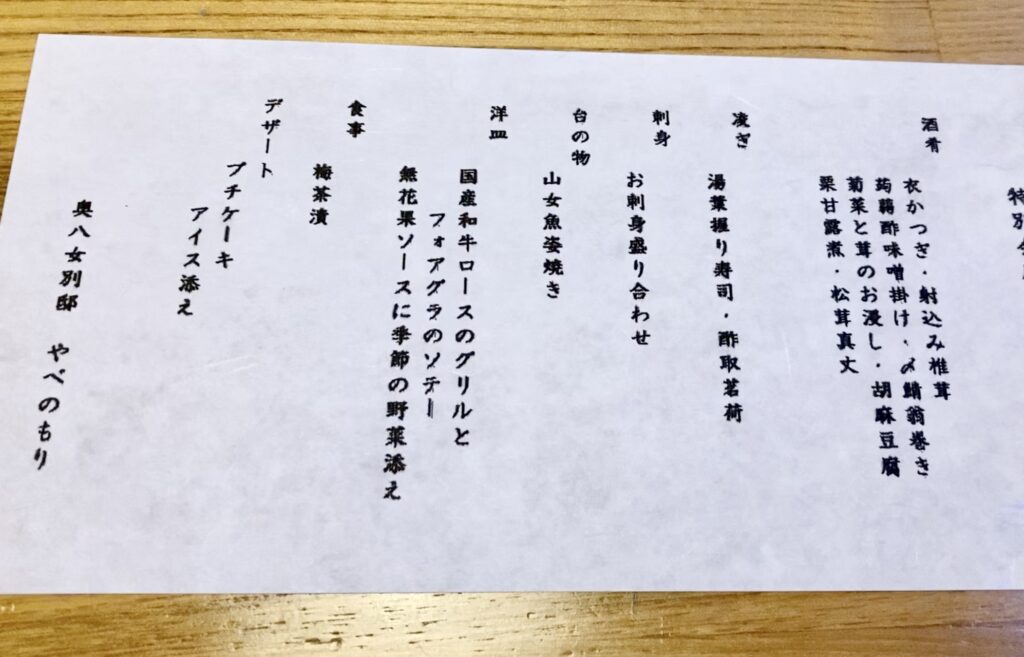 特別
酒肴
衣かつぎ・射込み椎茸
蒟蒻酢味噌掛け・〆鯖翁巻き
菊菜と茸のお浸し・胡麻豆腐
栗甘露煮・松茸真丈
凌ぎ
湯葉握り寿司・酢取茗荷
刺身
お刺身盛り合わせ
台の物
山女魚姿焼き
洋皿
国産和牛ロースのグリルと
フォアグラのソテー
無花果ソースに季節の野菜添え
食事
梅茶漬
デザート
プチケーキ
アイス添え
奥八女別邸 やべのもり